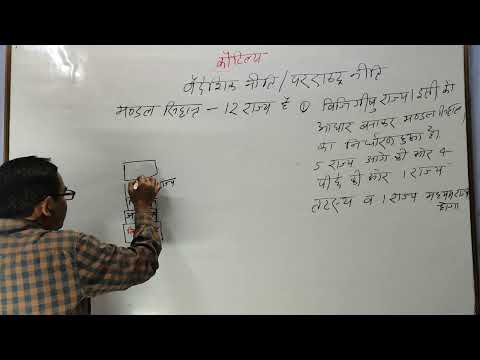 कौटिल्य
वैदेशिक नीति / परराष्ट्र नीति
मण्डल सिद्धान्त – 12 राज्य हैं ① विजिगीषु राज्य। इसी को
आधार बनाकर मण्डल सिद्धांत
का निर्धारण हुआ है।
5 राज्य आगे की ओर 4
पीछे की ओर 1 राज्य
तटस्थ व 1 राज्य मध्यम राज्य
होगा